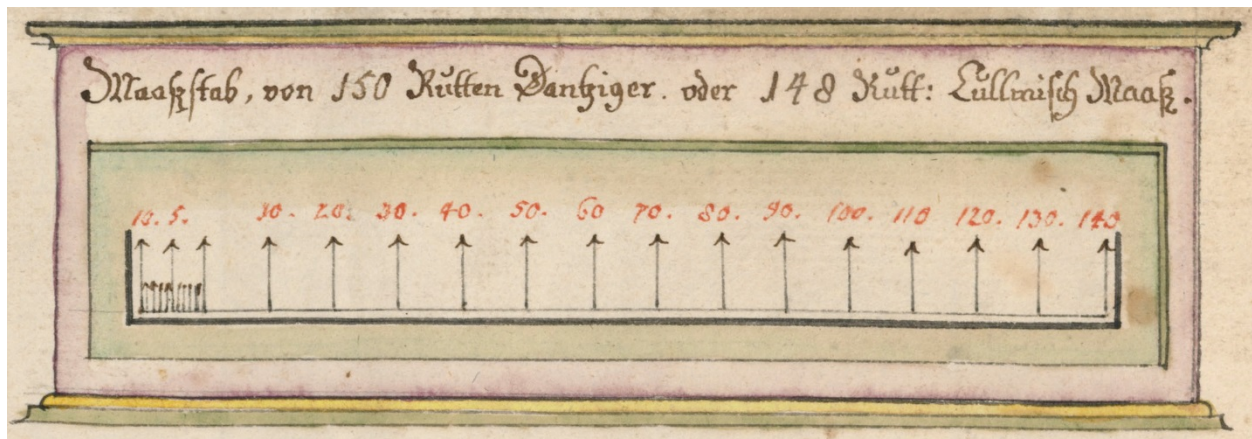 Maaßstab, von 150 Rutten Dantziger. oder 148 Rutt: Cullmisch Maaß.
10. 5. 10. 20. 30. 40. 50. 60 70. 80. 90. 100. 110 120. 130. 140